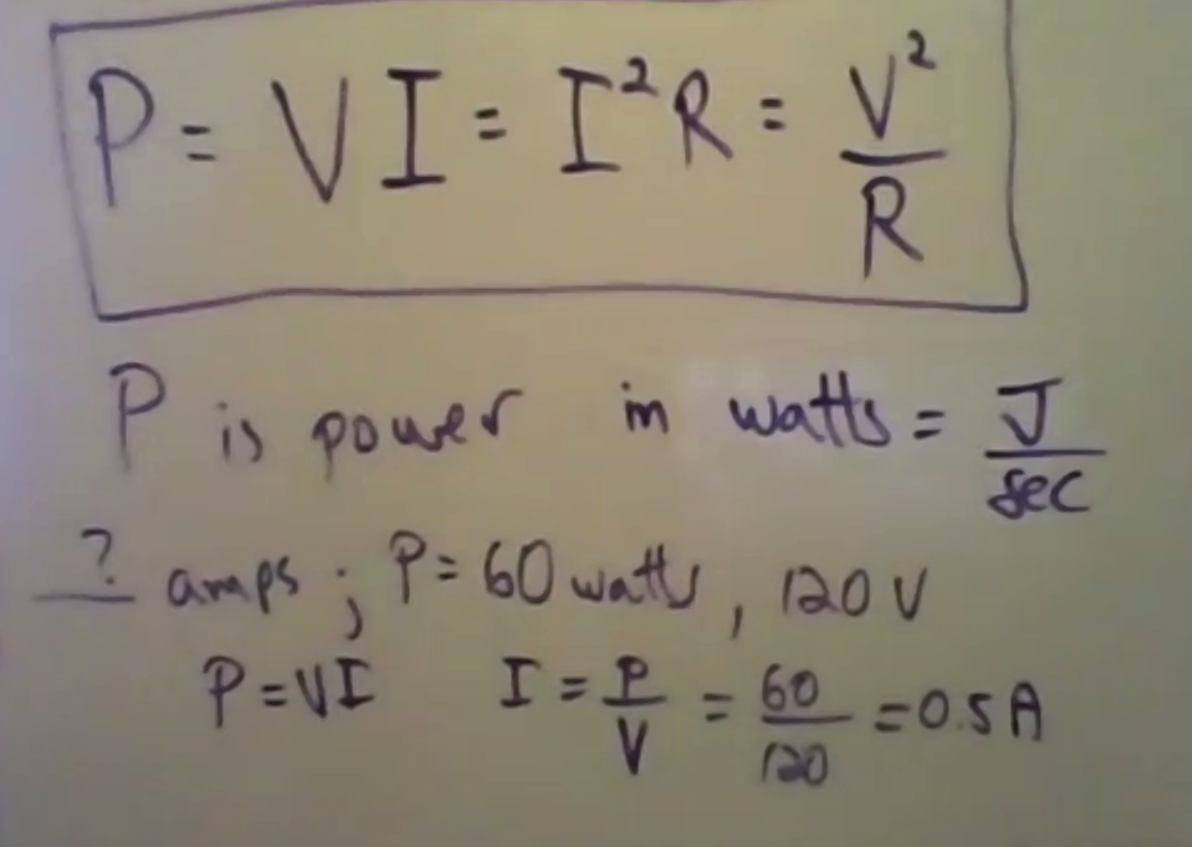 P = VI = I²R = V²/R
P is power in watts = J/sec
? amps ; P = 60 watts , 120 V
P = VI I = P/V = 60/120 = 0.5 A